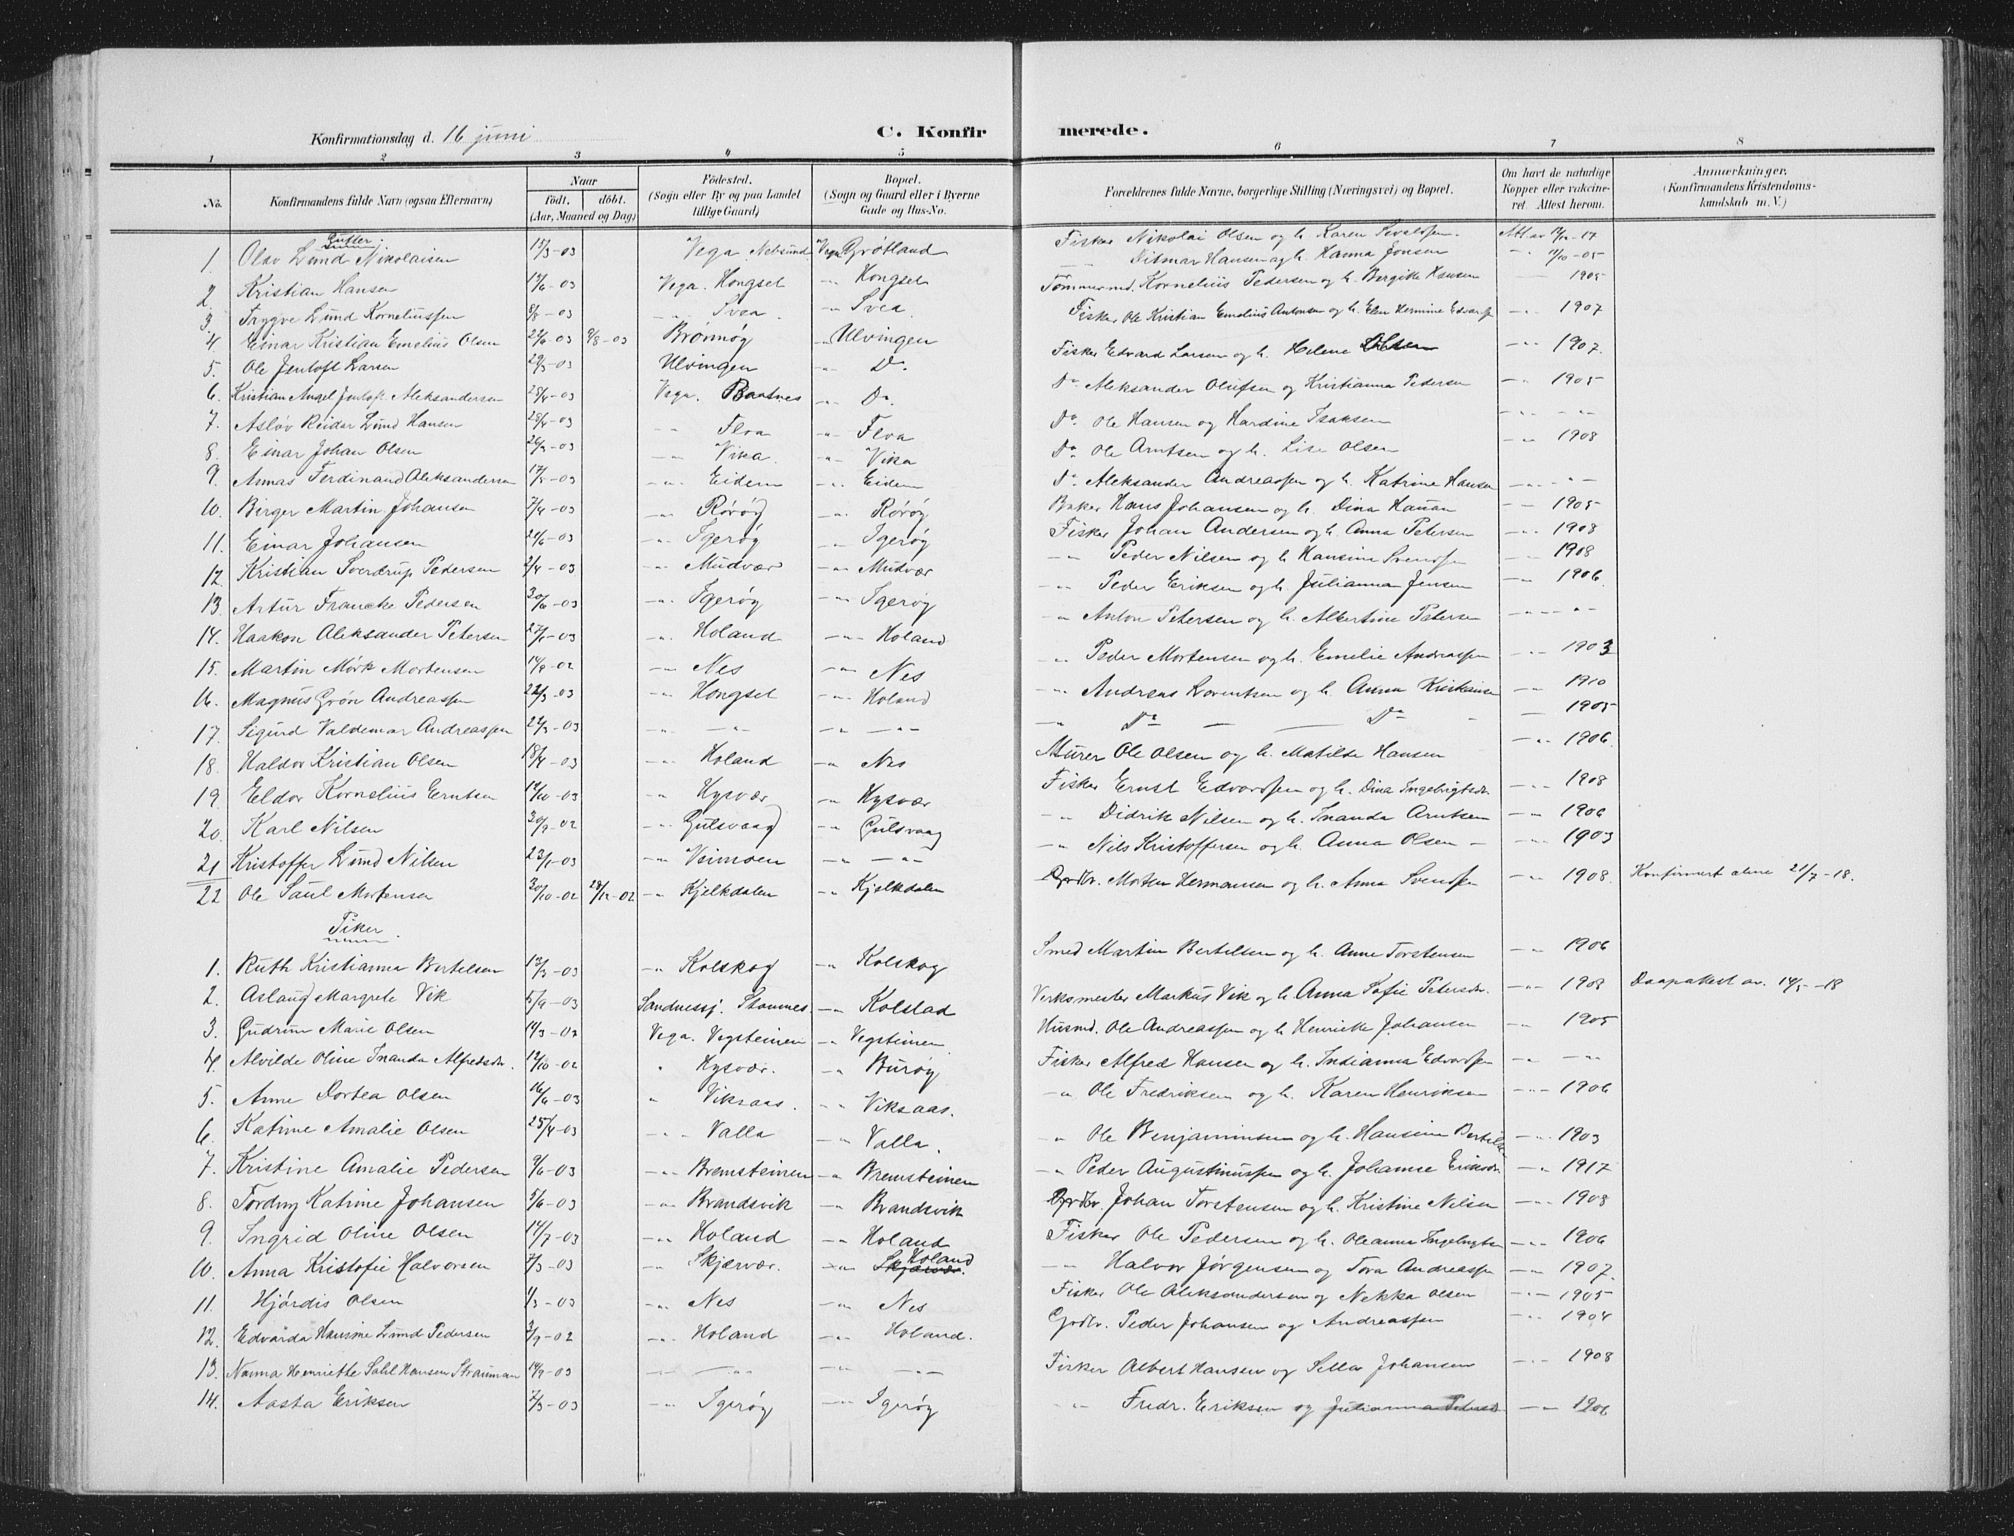 Konfirmationsdag d. 16 juni
C. Konfirmerede.
1 2 3 4 5 6 7 8
No. Konfirmandens fulde Navn (ogsaa Efternavn) Naar født. døbt. (Aar, Maaned og Dag) Fødested. (Sogn eller By og paa Landet tillige Gaard) Bopæl. (Sogn og Gaard eller i Byerne Gade og Hus-No. Forældrenes fulde Navne, borgerlige Stilling (Næringsvei) og Bopæl. Om havt de naturlige Kopper eller vaccineret. Attest herom. Anmærkninger. (Konfirmandens Kristendomskundskab m. V.)
Gutter
1. Olav Lund Nikolaisen 15/3-03 Vega Nebsund Vega Grøtland Fisker Nikolai Olsen og h. Karen
2. Kristian Hansen 17/6-03 Vega. Hongset -"- Hongset -"- Ditmar Hansen og h. Hanna Jensen -"- 11/10-05
3. Trygve Lund Korneliussen 8/8-03 -"- Svea -"- Svea Tømmermd. Kornelius Pedersen og h. Bergitte Hansen -"- 1905
4. Einar Kristian Emelius Olsen 22/6-03 9/8-03 Brønnøy -"- Ulvingen Fisker Ole Kristian Emelius Antonsen og h. Elen Hermine Edvardsen -"- 1907
5. Ole Jentoft Larsen 29/5-03 Ulvingen -"- Do. Fisker Edvard Larsen og h. Helene Olsen -"- 1907.
6. Kristian Angel Jentoft Aleksandersen 28/4-03 Vega. Baatnes -"- Do. Do. Aleksander Olufsen og Kristianna Pedersen -"- 1905
7. Asløv Reidar Lund Hansen 28/4-03 -"- Floa -"- Floa Do. Ole Hansen og Hardine Isaksen -"- -"-
8. Einar Johan Olsen 26/3-03 -"- Vika -"- Vika Do. Ole Arntsen og h. Lise Olsen -"- 1908
9. Annas Ferdinand Aleksandersen 17/5-03 -"- Eidem -"- Eidem Do. Aleksander Andreassen og h. Katrine Hansen -"- -"-
10. Birger Martin Johansen 7/4-03 -"- Rørøy -"- Rørøy Baker Hans Johansen og h. Dina Hauan -"- 1905
11. Einar Johansen 21/6-03 -"- Igerøy -"- Igerøy Fisker Johan Andersen og h. Anna Petersen -"- 1908
12. Kristian Sverdrup Pedersen 2/4-03 -"- Mudvær -"- Mudvær -"- Peder Nilsen og h. Hansine Svendsen -"- 1908
13. Artur Francke Pedersen 30/6-03 -"- Igerøy -"- Igerøy -"- Peder Eriksen og h. Julianna Jensen -"- 1906.
14. Haakon Aleksander Petersen -03 -"- Holand -"- Holand -"- Anton Petersen og h. Albertine Petersen -"- -"-
15. Martin Mørk Mortensen 14/9-02 -"- Nes -"- Nes -"- Peder Mortensen og h. Emelie Andreassen -"- 1903
16. Magnus Grøn Andreassen 22/3-03 -"- Hongset -"- Holand -"- Andreas Lorentsen og h. Anna Kristiansen -"- 1910
17. Sigurd Valdemar Andreassen 22/3-03 -"- -"- -"- -"- -"- Do. — Do. -"- 1905
18. Haldor Kristian Olsen 18/4-03 -"- Holand -"- Nes Murer Ole Olsen og h. Matilde Hansen -"- 1906.
19. Eldor Kornelius Erntsen 12/10-03 -"- Hysvær -"- Hysvær Fisker Ernst Edvardsen og h. Dina Ingebrigtsdr. -"- 1908
20. Karl Nilsen 30/9-02 -"- Gulsvaag -"- Gulsvaag -"- Didrik Nilsen og h. Inanda Arntsen -"- 1906
21 Kristoffer Lund Nilsen 23/1-03 -"- Veimoen -"- -"- -"- Nils Kristoffersen og h. Anna Olsen -"- 1903
22 Ole Saul Mortensen 30/10-02 28/12-02 -"- Kjelkdalen -"- Kjelkdalen Grdbr. Morten Hermansen og h. Anna Svendsen -"- 1908. Konfirmert alene 21/7-18.
Piker.
1. Ruth Kristianna Bertelsen 12/3-03 -"- Kolskog -"- Kolskog Smed Martin Bertelsen og h. Anne Torstensen -"- 1906
2. Aslaug Margrete Vik 5/9-03 Sandnessj. Stamnes -"- Kolstad Verksmester Markus Vik og h. Anna Sofie Petersdr. -"- 1908 Daapattest av. 14/5-18
3. Gudrun Marie Olsen 14/3-03 Vega. Vegsteinen -"- Vegsteinen Husmd. Ole Andreassen og h. Henrikke Johansen -"- 1905
4. Alvilde Oline Inanda Alfredsdr. 12/10-02 " Hysvær. -"- Burøy Fisker Alfred Hansen og h. Indianna Edvardsen -"- -"-
5. Anne Dortea Olsen 16/6-03 " Viksaas. -"- Viksaas. -"- Ole Fredriksen og h. Karen Henriksen -"- 1906
6. Katrine Amalie Olsen 25/4-03 -"- Valla -"- Valla. -"- Ole Benjaminsen og h. Hansine Bertelsen -"- 1903
7. Kristine Amalie Pedersen 9/6-03 -"- Bremsteinen -"- Bremsteinen -"- Peder Augustinussen og h. Johanne Eriksdr. -"- 1917
8. Tordny Katrine Johansen 5/6-03 -"- Brandsvik -"- Brandsvik Grdbr. Johan Torstensen og h. Kristine Nilsen -"- 1908
9. Ingrid Oline Olsen 14/7-03 -"- Holand -"- Holand Fisker Ole Pedersen og h. Oleanna Ingebrigtsen -"- 1906
10. Anna Kristofie Halvorsen 7/3-03 -"- Skjærvær. -"- Skjærvær. Holand -"- Halvor Jørgensen og Tora Andreassen -"- 1907.
11. Hjørdis Olsen 1/3-03 -"- Nes -"- Nes Fisker Ole Aleksandersen og Nekka Olsen -"- 1905
12. Edvarda Hansine Lund Pedersen 3/9-02 -"- Holand -"- Holand. Grdbr. Peder Johansen og Andreassen -"- 1904
13. Nanna Henriette Sahl Hansen Strauman 14/9-03 -"- -"- -"- -"- Fisker Albert Hansen og Sella Johansen -"- 1908
14. Aasta Eriksen 7/3-03 -"- Igerøy -"- Igerøy -"- Fredr. Eriksen og Julianna -"- 1906